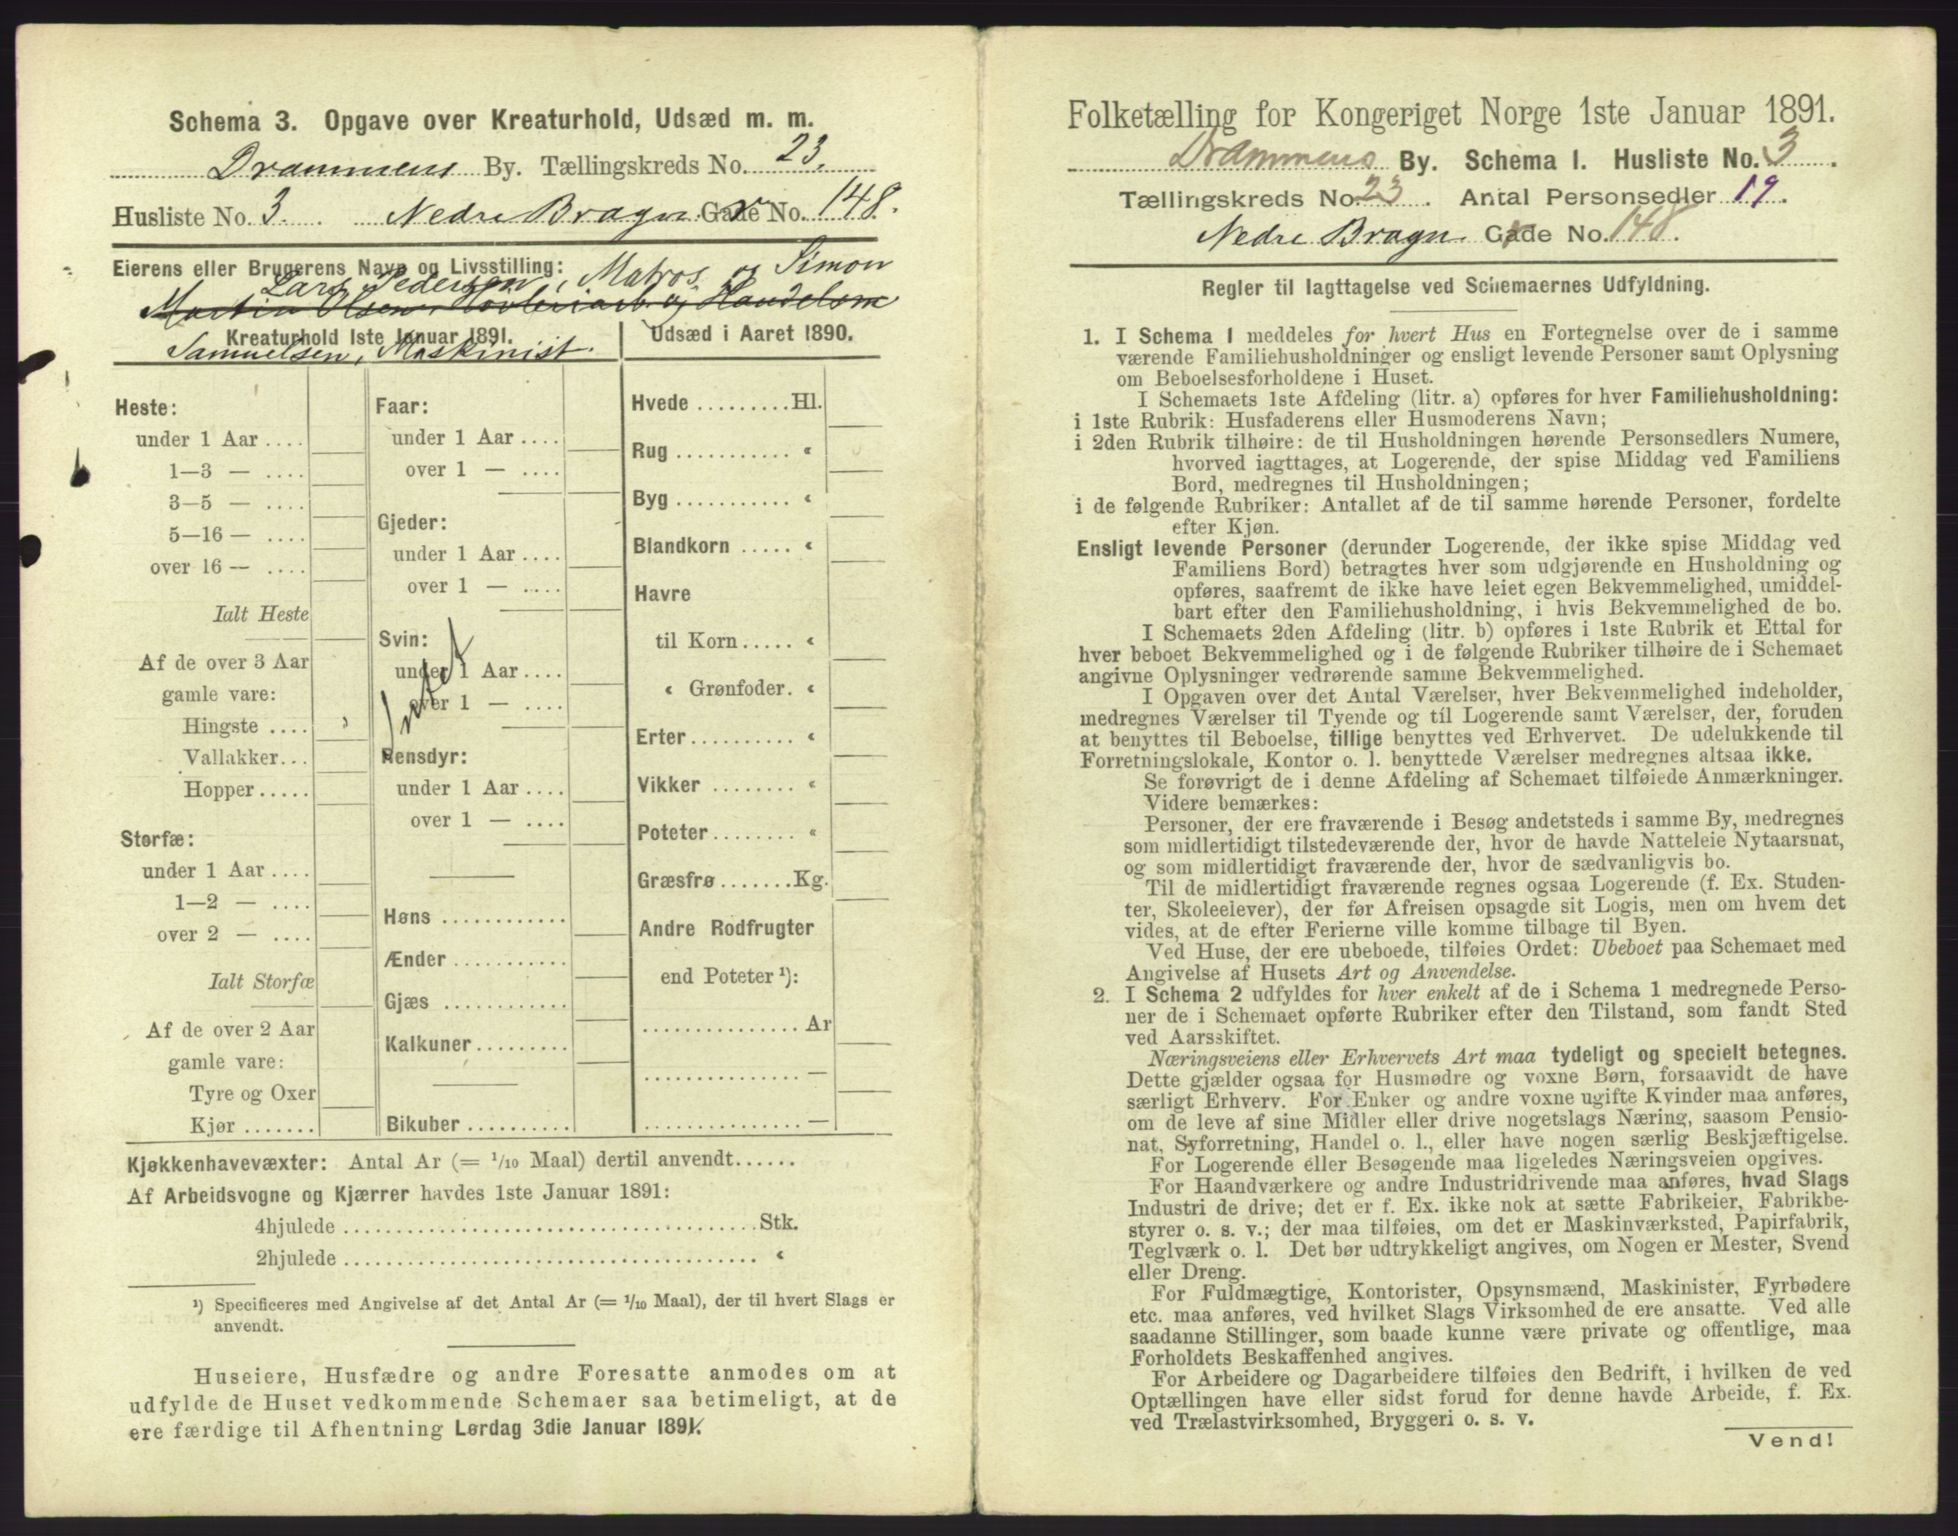 Schema 3. Opgave over Kreaturhold, Udsæd m. m.
Drammens By. Tællingskreds No. 23.
Husliste No. 3. Nedre Bragn. Gade No. 148.
Eierens eller Brugerens Navn og Livsstilling:
Lars Pedersen, Matros og Simon
Martin Olsen, Høvleriarb. og Handelsm
Samuelsen, Maskinist.
Kreaturhold 1ste Januar 1891.
Udsæd i Aaret 1890.
Heste:
under 1 Aar ....
1—3 — ....
3—5 — ....
5—16 — ....
over 16 — ....
Ialt Heste
Af de over 3 Aar
gamle vare:
Hingste ....
Vallakker...
Hopper .....
Storfæ:
under 1 Aar ....
1—2 — ....
over 2 — ....
Ialt Storfæ
Af de over 2 Aar
gamle vare:
Tyre og Oxer
Kjør .......
Faar:
under 1 Aar ....
over 1 — ....
Gjeder:
under 1 Aar ....
over 1 — ....
Svin:
under 1 Aar ....
over 1 — ....
Intet
Rensdyr:
under 1 Aar ....
over 1 — ....
Høns ............
Ænder ...........
Gjæs ............
Kalkuner .........
Bikuber ..........
Hvede .........Hl.
Rug ........... "
Byg ........... "
Blandkorn ..... "
Havre
til Korn ..... "
" Grønfoder. "
Erter .......... "
Vikker ........ "
Poteter ........ "
Græsfrø .......Kg.
Andre Rodfrugter
end Poteter ¹):
............... Ar
............... —
............... —
Kjøkkenhavevæxter: Antal Ar (= 1/10 Maal) dertil anvendt......
Af Arbeidsvogne og Kjærrer havdes 1ste Januar 1891:
4hjulede ........................................Stk.
2hjulede ........................................ "
¹) Specificeres med Angivelse af det Antal Ar (= 1/10 Maal), der til hvert Slags er
anvendt.
Huseiere, Husfædre og andre Foresatte anmodes om at
udfylde de Huset vedkommende Schemaer saa betimeligt, at de
ere færdige til Afhentning Lørdag 3die Januar 1891.
Folketælling for Kongeriget Norge 1ste Januar 1891.
Drammens By. Schema 1. Husliste No. 3.
Tællingskreds No. 23. Antal Personsedler 19.
Nedre Bragn. Gade No. 148.
Regler til Iagttagelse ved Schemaernes Udfyldning.
1. I Schema 1 meddeles for hvert Hus en Fortegnelse over de i samme
værende Familiehusholdninger og ensligt levende Personer samt Oplysning
om Beboelsesforholdene i Huset.
I Schemaets 1ste Afdeling (litr. a) opføres for hver Familiehusholdning:
i 1ste Rubrik: Husfaderens eller Husmoderens Navn;
i 2den Rubrik tilhøire: de til Husholdningen hørende Personsedlers Numere,
hvorved iagttages, at Logerende, der spise Middag ved Familiens
Bord, medregnes til Husholdningen;
i de følgende Rubriker: Antallet af de til samme hørende Personer, fordelte
efter Kjøn.
Ensligt levende Personer (derunder Logerende, der ikke spise Middag ved
Familiens Bord) betragtes hver som udgjørende en Husholdning og
opføres, saafremt de ikke have leiet egen Bekvemmelighed, umiddel-
bart efter den Familiehusholdning, i hvis Bekvemmelighed de bo.
I Schemaets 2den Afdeling (litr. b) opføres i 1ste Rubrik et Ettal for
hver beboet Bekvemmelighed og i de følgende Rubriker tilhøire de i Schemaet
angivne Oplysninger vedrørende samme Bekvemmelighed.
I Opgaven over det Antal Værelser, hver Bekvemmelighed indeholder,
medregnes Værelser til Tyende og til Logerende samt Værelser, der, foruden
at benyttes til Beboelse, tillige benyttes ved Erhvervet. De udelukkende til
Forretningslokale, Kontor o. l. benyttede Værelser medregnes altsaa ikke.
Se forøvrigt de i denne Afdeling af Schemaet tilføiede Anmærkninger.
Videre bemærkes:
Personer, der ere fraværende i Besøg andetsteds i samme By, medregnes
som midlertidigt tilstedeværende der, hvor de havde Natteleie Nytaarsnat,
og som midlertidigt fraværende der, hvor de sædvanligvis bo.
Til de midlertidigt fraværende regnes ogsaa Logerende (f. Ex. Studen-
ter, Skoleelever), der før Afreisen opsagde sit Logis, men om hvem det
vides, at de efter Ferierne ville komme tilbage til Byen.
Ved Huse, der ere ubeboede, tilføies Ordet: Ubeboet paa Schemaet med
Angivelse af Husets Art og Anvendelse.
2. I Schema 2 udfyldes for hver enkelt af de i Schema 1 medregnede Perso-
ner de i Schemaet opførte Rubriker efter den Tilstand, som fandt Sted
ved Aarsskiftet.
Næringsveiens eller Erhvervets Art maa tydeligt og specielt betegnes.
Dette gjælder ogsaa for Husmødre og voxne Børn, forsaavidt de have
særligt Erhverv. For Enker og andre voxne ugifte Kvinder maa anføres,
om de leve af sine Midler eller drive nogetslags Næring, saasom Pensio-
nat, Syforretning, Handel o. l., eller have nogen særlig Beskjæftigelse.
For Logerende eller Besøgende maa ligeledes Næringsveien opgives.
For Haandværkere og andre Industridrivende maa anføres, hvad Slags
Industri de drive; det er f. Ex. ikke nok at sætte Fabrikeier, Fabrikbe-
styrer o. s. v.; der maa tilføies, om det er Maskinværksted, Papirfabrik,
Teglværk o. l. Det bør udtrykkeligt angives, om Nogen er Mester, Svend
eller Dreng.
For Fuldmægtige, Kontorister, Opsynsmænd, Maskinister, Fyrbødere
etc. maa anføres, ved hvilket Slags Virksomhed de ere ansatte. Ved alle
saadanne Stillinger, som baade kunne være private og offentlige, maa
Forholdets Beskaffenhed angives.
For Arbeidere og Dagarbeidere tilføies den Bedrift, i hvilken de ved
Optællingen have eller sidst forud for denne havde Arbeide, f. Ex.
ved Trælastvirksomhed, Bryggeri o. s. v.
Vend!